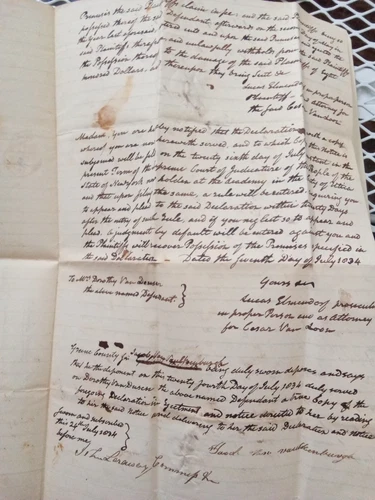 Premises the said Plaintiffs claim in fee, and the said
possessed thereof the said Defendant afterwards on the
the Year last aforesaid entered into and upon the said Premises
said Plaintiffs thereof and unlawfully withholds from
the Possession thereof to the damage of the said Plaintiffs
hundred Dollars, and thereupon they bring Suit &c
Lucas Elmendorf in proper person
Plaintiff attorney for
the said Cesar Van Loon
Madam, You are hereby notified that the Declaration a copy
whereof you are now herewith served, and to which this Notice is
subjoined will be filed on the twenty sixth day of July in the
present Term of the Supreme Court of Judicature of the People of the
State of New York holden at the Academy in the City of Utica
and that upon filing the same, a rule will be entered requiring you
to appear and plead to the said Declaration within twenty Days
after the entry of such Rule, and if you neglect so to appear and
plead, a judgment by default will be entered against you and
the Plaintiffs will recover Possession of the Premises specified in
the said Declaration – Dated the seventh Day of July 1834
To Mrs Dorothy Van Deusen
the above named Defendant
Yours &c
Lucas Elmendorf prosecutor
in proper Person and as Attorney
for Cesar Van Loon
Greene County ss being duly sworn deposes and says
that the deponent on this twenty fourth Day of July 1834 duly served
on Dorothy Van Deusen the above named Defendant a true Copy of the
foregoing Declaration in Ejectment and notice directed to her by reading
to her the said notice and delivering to her the said Declaration and notice
Sworn and subscribed
this 24th July 1834
before me
Jacob van